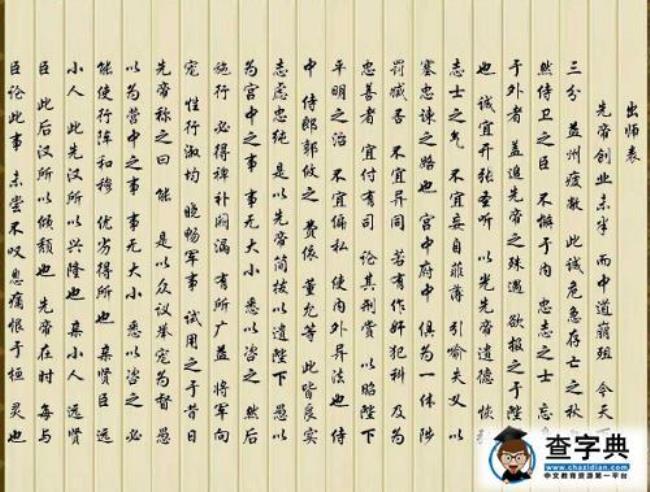 出师表
先帝创业未半 而中道崩殂 今天
三分 益州疲敝 此诚危急存亡之秋
然侍卫之臣 不懈于内 忠志之士 忘
于外者 盖追先帝之殊遇 欲报之于陛
也 诚宜开张圣听 以光先帝遗德 恢
志士之气 不宜妄自菲薄 引喻失义 以
塞忠谏之路也 宫中府中 俱为一体 陟
罚臧否 不宜异同 若有作奸犯科 及为
忠善者 宜付有司 论其刑赏 以昭陛下
平明之治 不宜偏私 使内外异法也 侍
中 侍郎郭攸之 费依 董允等 此皆良实
志虑忠纯 是以先帝简拔以遗陛下 愚以
为宫中之事 事无大小 悉以咨之 然后
施行 必得裨补阙漏 有所广益 将军向
宠 性行淑均 晓畅军事 试用之于昔日
先帝称之曰能 是以众议举宠为督 愚
以为营中之事 事无大小 悉以咨之 必
能使行阵和穆 优劣得所也 亲贤臣 远
小人 此先汉所以兴隆也 亲小人 远贤
臣 此后汉所以倾颓也 先帝在时 每与
臣论此事 未尝不叹息痛恨于桓 灵也
查字典
www.chazidian.com
中文教育资源第一平台